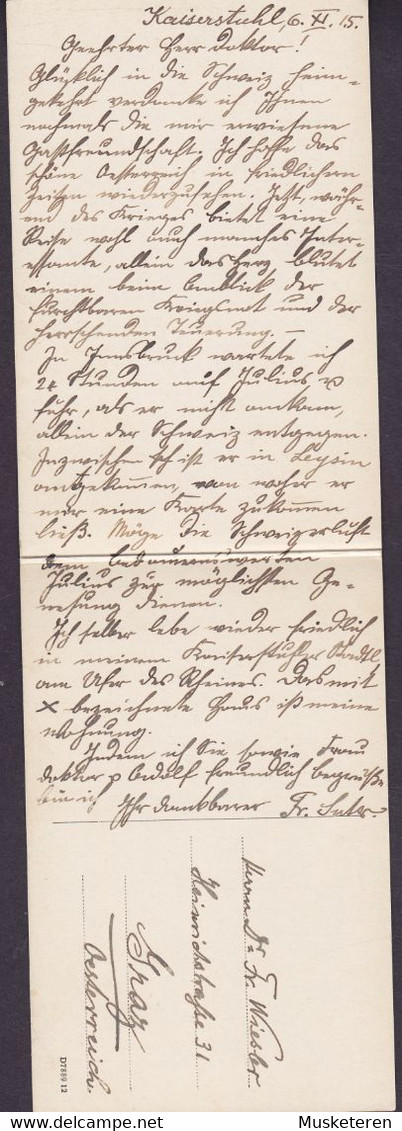 Kaiserstuhl, 6. XI. 15.
Geehrter Herr Doktor!
Glücklich in die Schweiz heim-
gekehrt verdanke ich Ihnen
nochmals die mir erwiesene
Gastfreundschaft. Ich hoffe das
schöne Oesterreich in friedlichern
Zeiten wiederzusehen. Jetzt, währ-
end des Krieges bietet eine
Reise wohl auch manches Inter-
essante, allein das Herz blutet
einem beim Anblick der
furchtbaren Kriegsnot und der
herrschenden Teuerung. –
In Innsbruck wartete ich
24 Stunden auf Julius u
fuhr, als er nicht ankam,
allein der Schweiz entgegen.
Inzwischen ist er in Leysin
angekommen, von woher er
mir eine Karte zukommen
ließ. Möge die Schweizerluft
dem bedauernswerten
Julius zur möglichsten Ge-
nesung dienen.
Ich selber lebe wieder friedlich
in meinem Kaiserstuhler Städtl
am Ufer des Rheines. Das mit
x bezeichnete Haus ist meine
Wohnung.
Indem ich Sie sowie Frau
Doktor Adolf freundlich begrüße
bin ich Ihr dankbarer Fr. Suter.
Herrn Dr. Fr. Wiesler
Heinrichstraße 31
Graz
Oesterreich.
D7889 12
www.delcampe.net
Musketeren